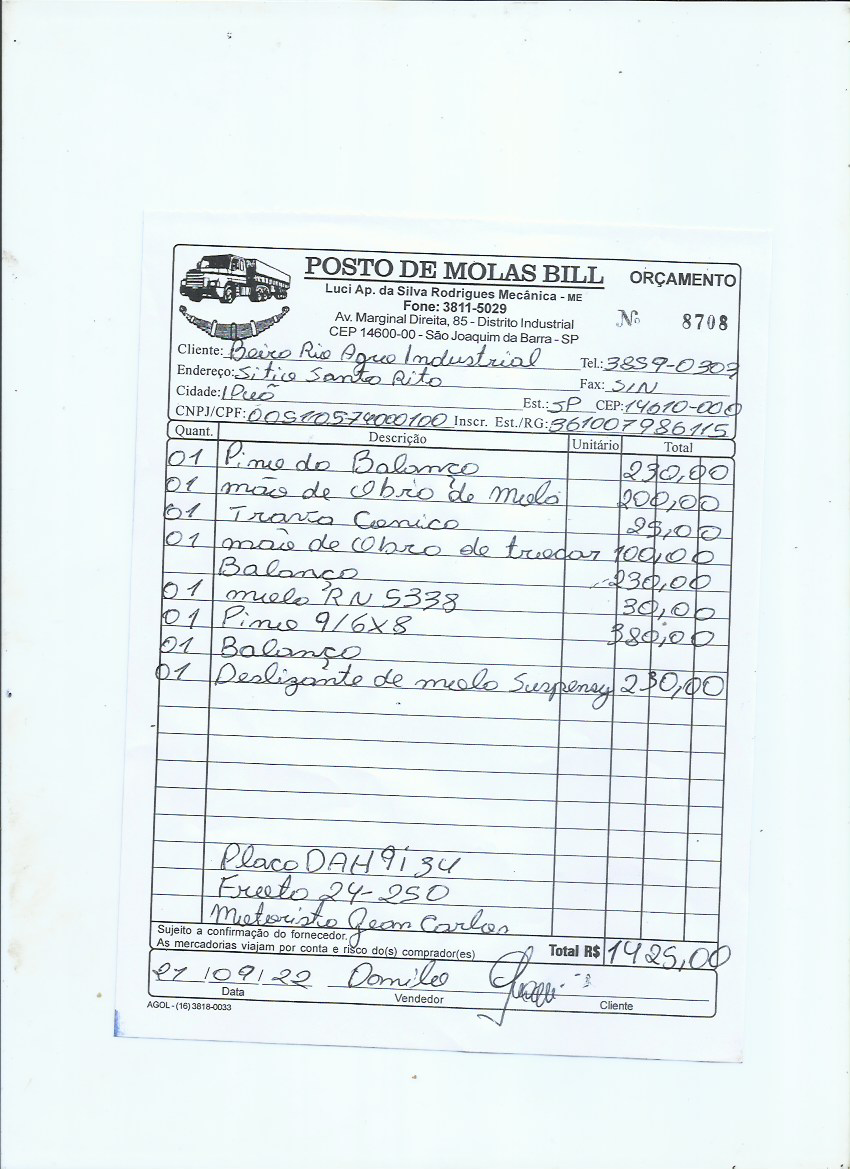 POSTO DE MOLAS BILL
ORÇAMENTO
Luci Ap. da Silva Rodrigues Mecânica - ME
Fone: 3811-5029
Av. Marginal Direita, 85 - Distrito Industrial
CEP 14600-00 - São Joaquim da Barra - SP
Nº 8708
Cliente: Beira Rio Agro Industrial Tel.: 3859-0303
Endereço: Sitio Santa Rita Fax: S/N
Cidade: Ipuã Est.: SP CEP: 14610-000
CNPJ/CPF: 00510574000100 Inscr. Est./RG: 361007986115
Quant. Descrição Unitário Total
01 Pino do Balanço 230,00
01 mão de Obra de Mola 200,00
01 Trava Conico 25,00
01 mão de Obra de trocar 100,00
Balanço 230,00
01 mola RN 5338 30,00
01 Pino 9/6X8 380,00
01 Balanço
01 Deslizante de mola 230,00
Placa DAH 9i34
Frota 24-250
Motorista Jean Carlos
Sujeito a confirmação do fornecedor.
As mercadorias viajam por conta e risco do(s) comprador(es)
Total R$ 1425,00
21/09/22 Danilo
Data Vendedor Cliente
AGOL - (16) 3818-0033